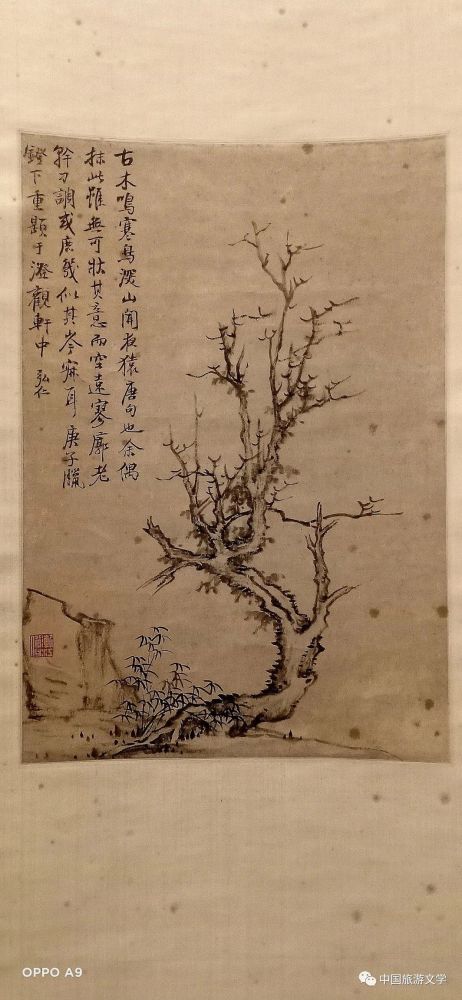 古木鳴寒鳥深山聞夜猿唐句也余偶
抹此雖無可狀其意而空遠寥廓老
幹刁調或庶幾似其岑寂耳庚子臘
鐙下重題于澄觀軒中 弘仁
OPPO A9
中国旅游文学